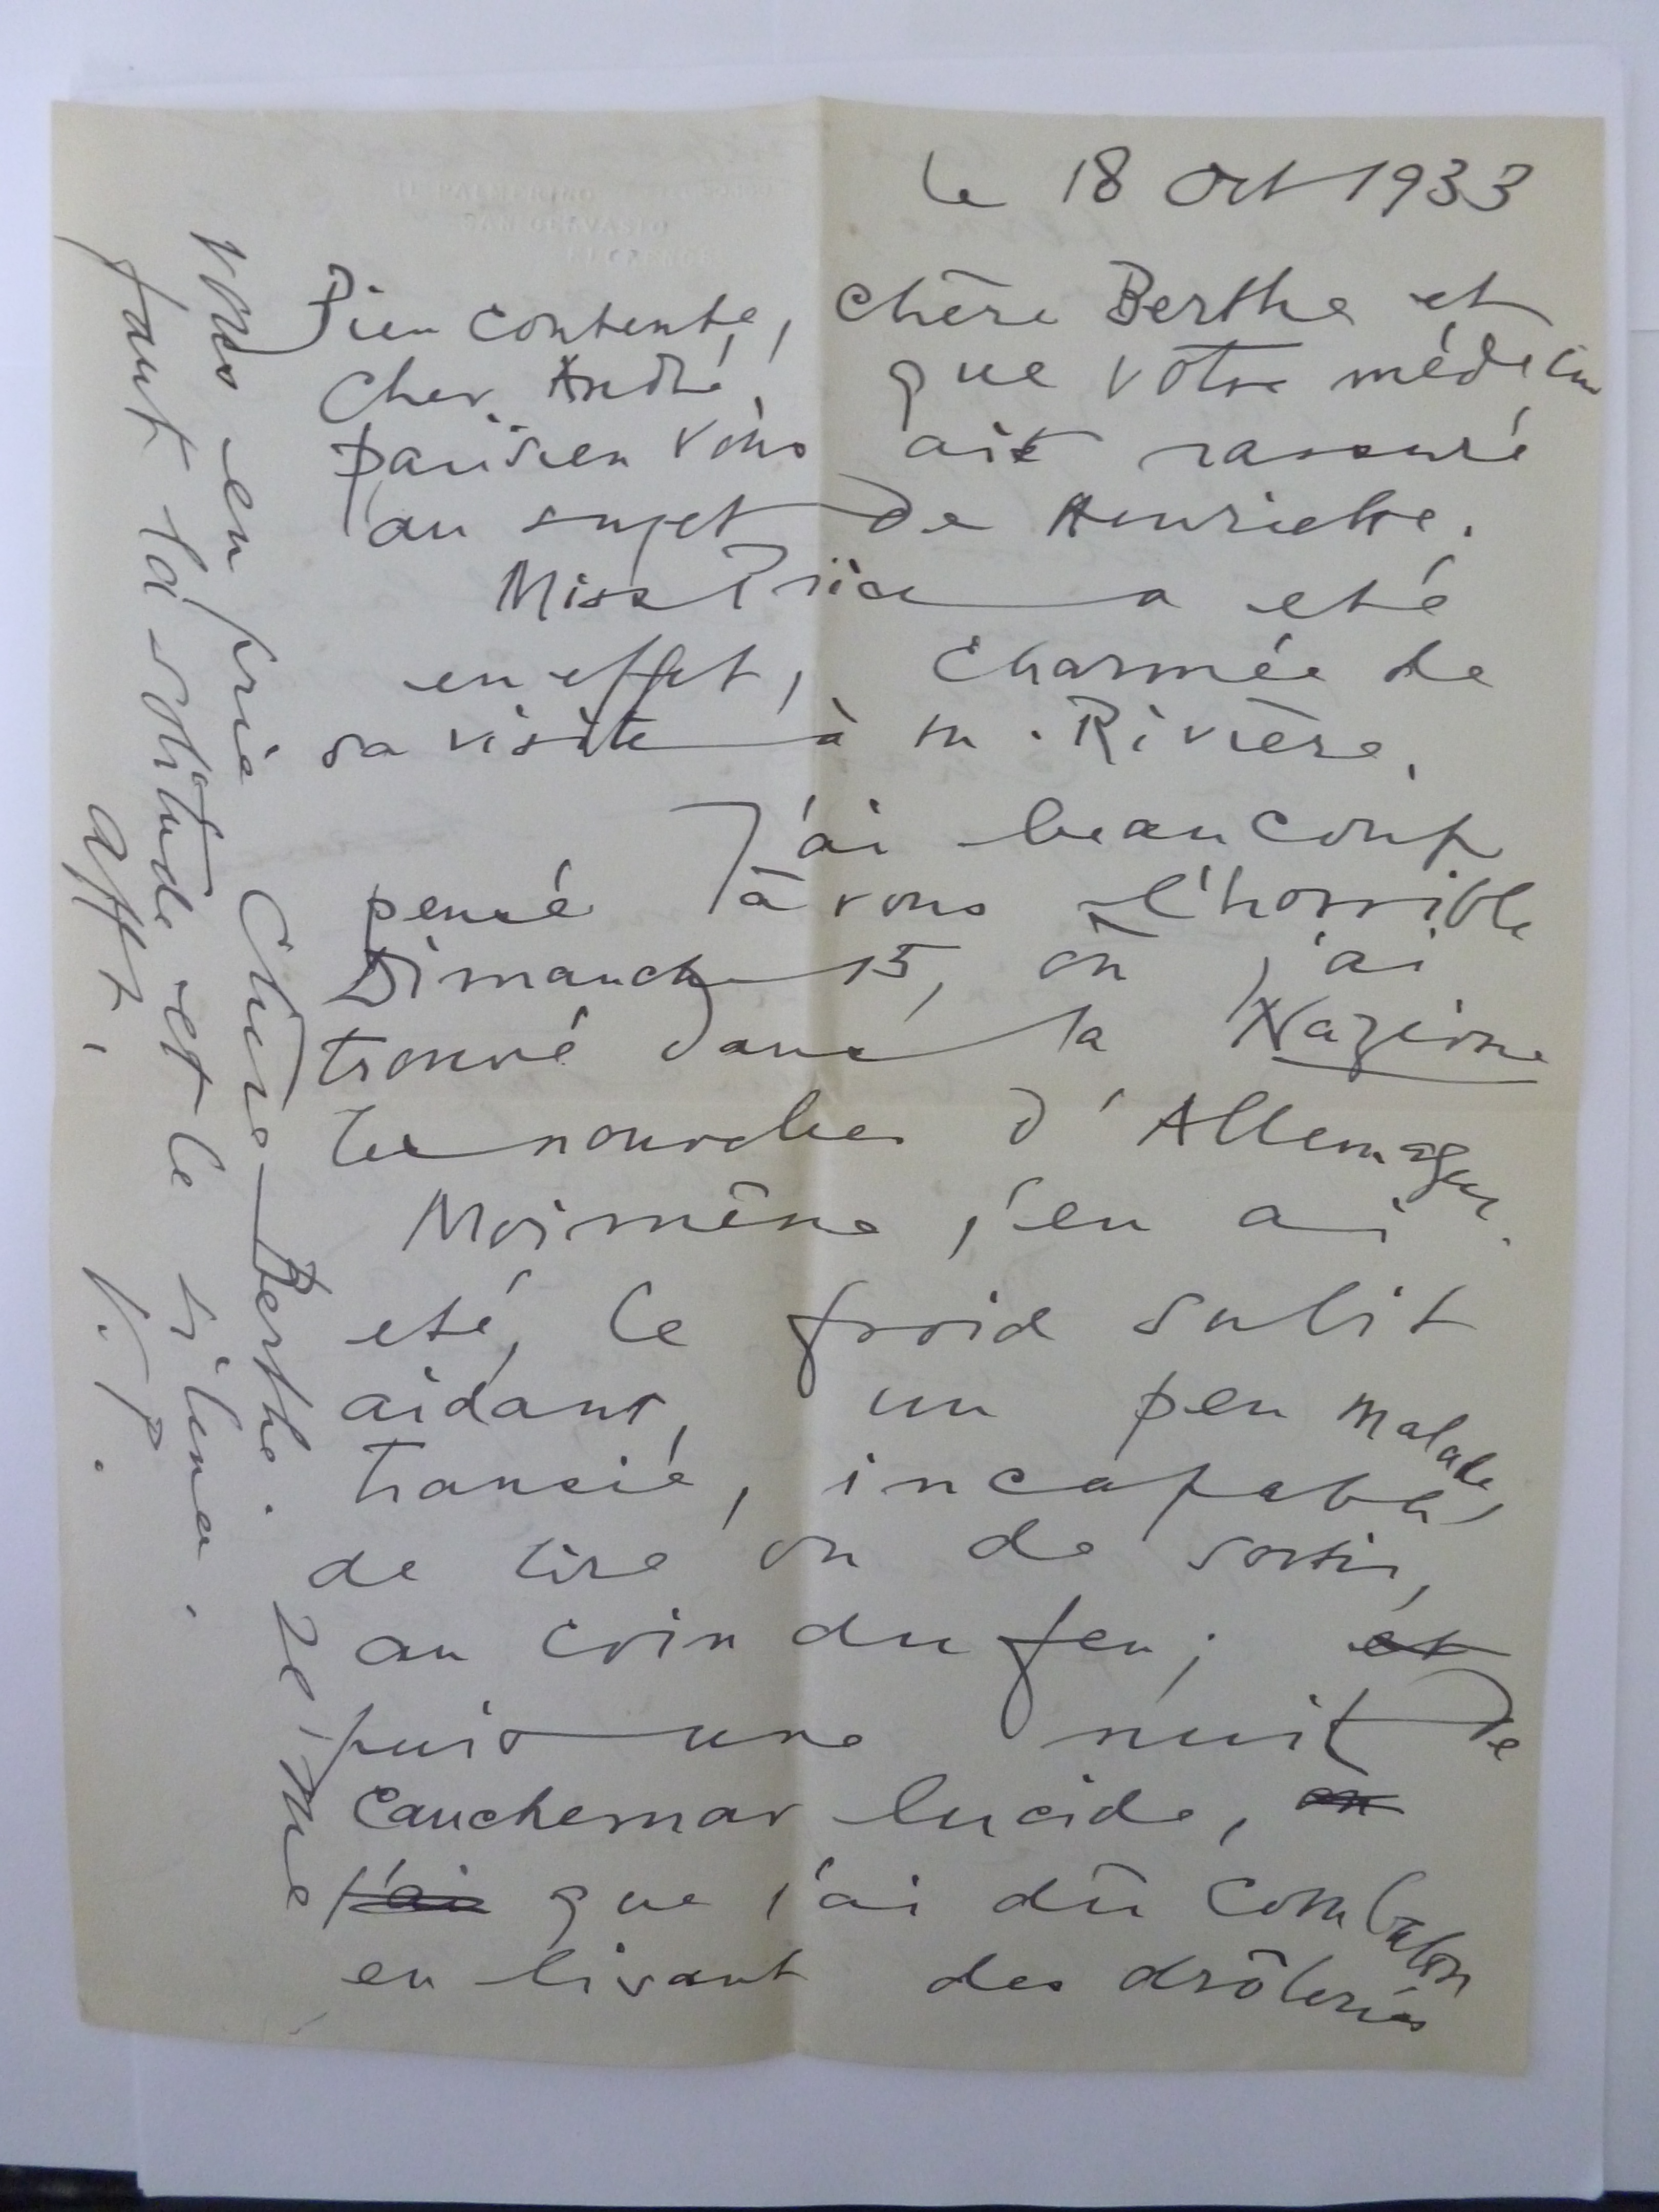 IL PALMERINO
SAN GERVASIO
FLORENCE
le 18 Oct 1933
Bien contente, chère Berthe et
Cher André, que votre médecin
parisien vous ait rassuré
au sujet de Henriette.
Miss Price a eté
en effet, charmée de
sa visite à M. Rivière.
J'ai beaucoup
pensé à vous l'horrible
Dimanche 15, où j'ai
trouvé dans la Nazione
les nouvelles d'Allemagne.
Moi même j'en ai
eté, le froid subit
aidant, un peu malade,
transie, incapable
de lire ou de sortir,
au coin du feu; et
puis une nuit de
cauchemar lucide, on
j'ai que j'ai dû combattre
en lisant des drôleries
vous en prie Chère Berthe. Je
faut la solitude et le silence.
afft.
V. P.